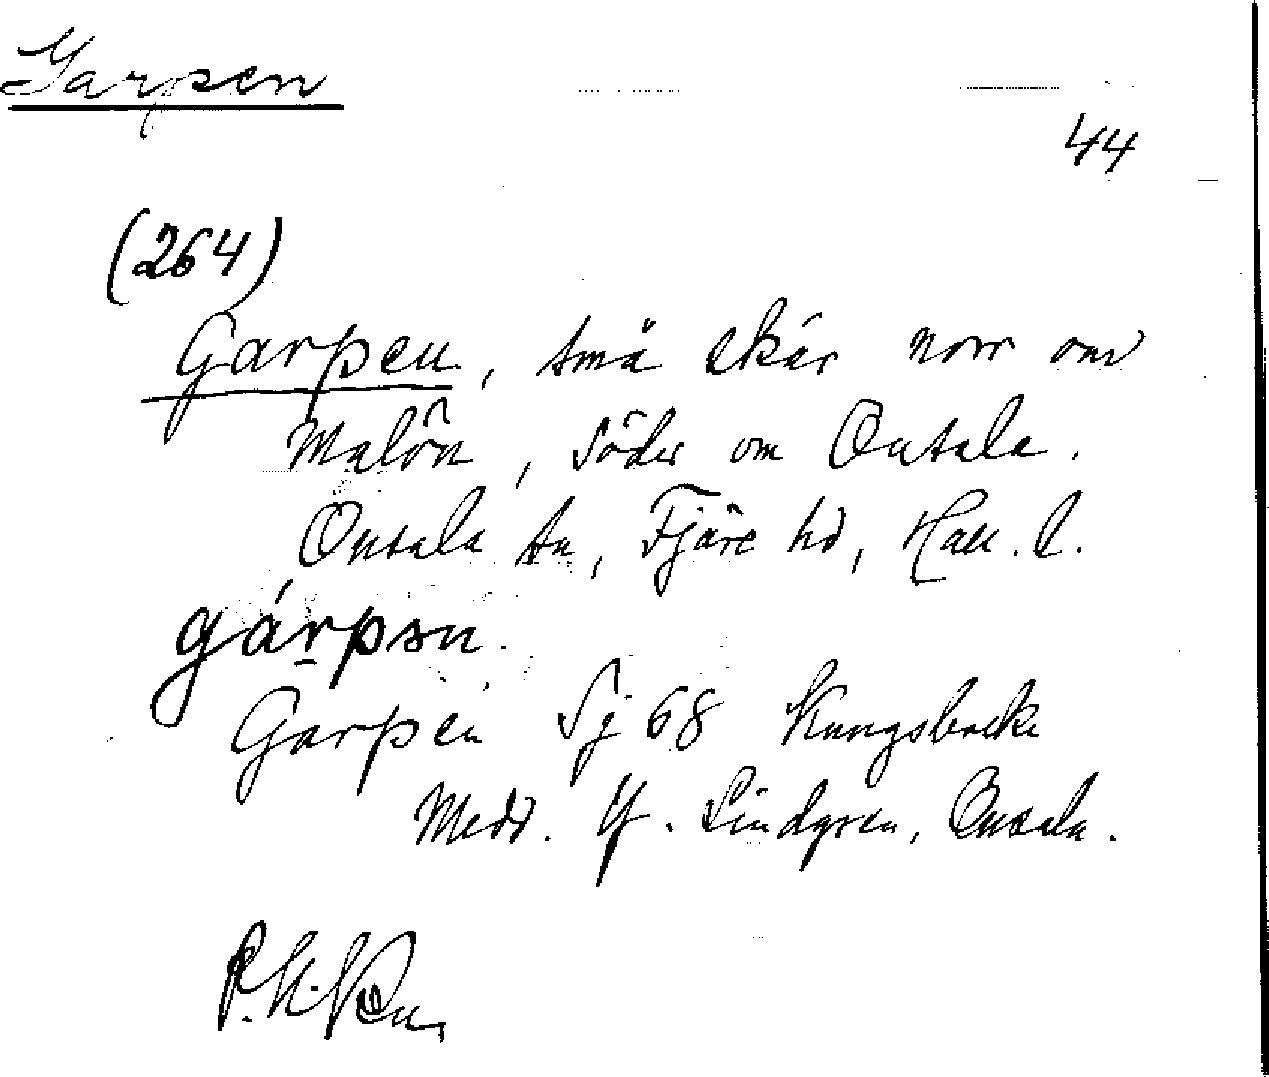 Garpen
44
(264)
Garpen, små skär norr om
Malön, söder om Onsala.
Onsala sn, Fjäre hd, Hall. l.
gárpən.
Garpen Sj 68 Kungsbacka
Medd. Lindgren, Onsala.